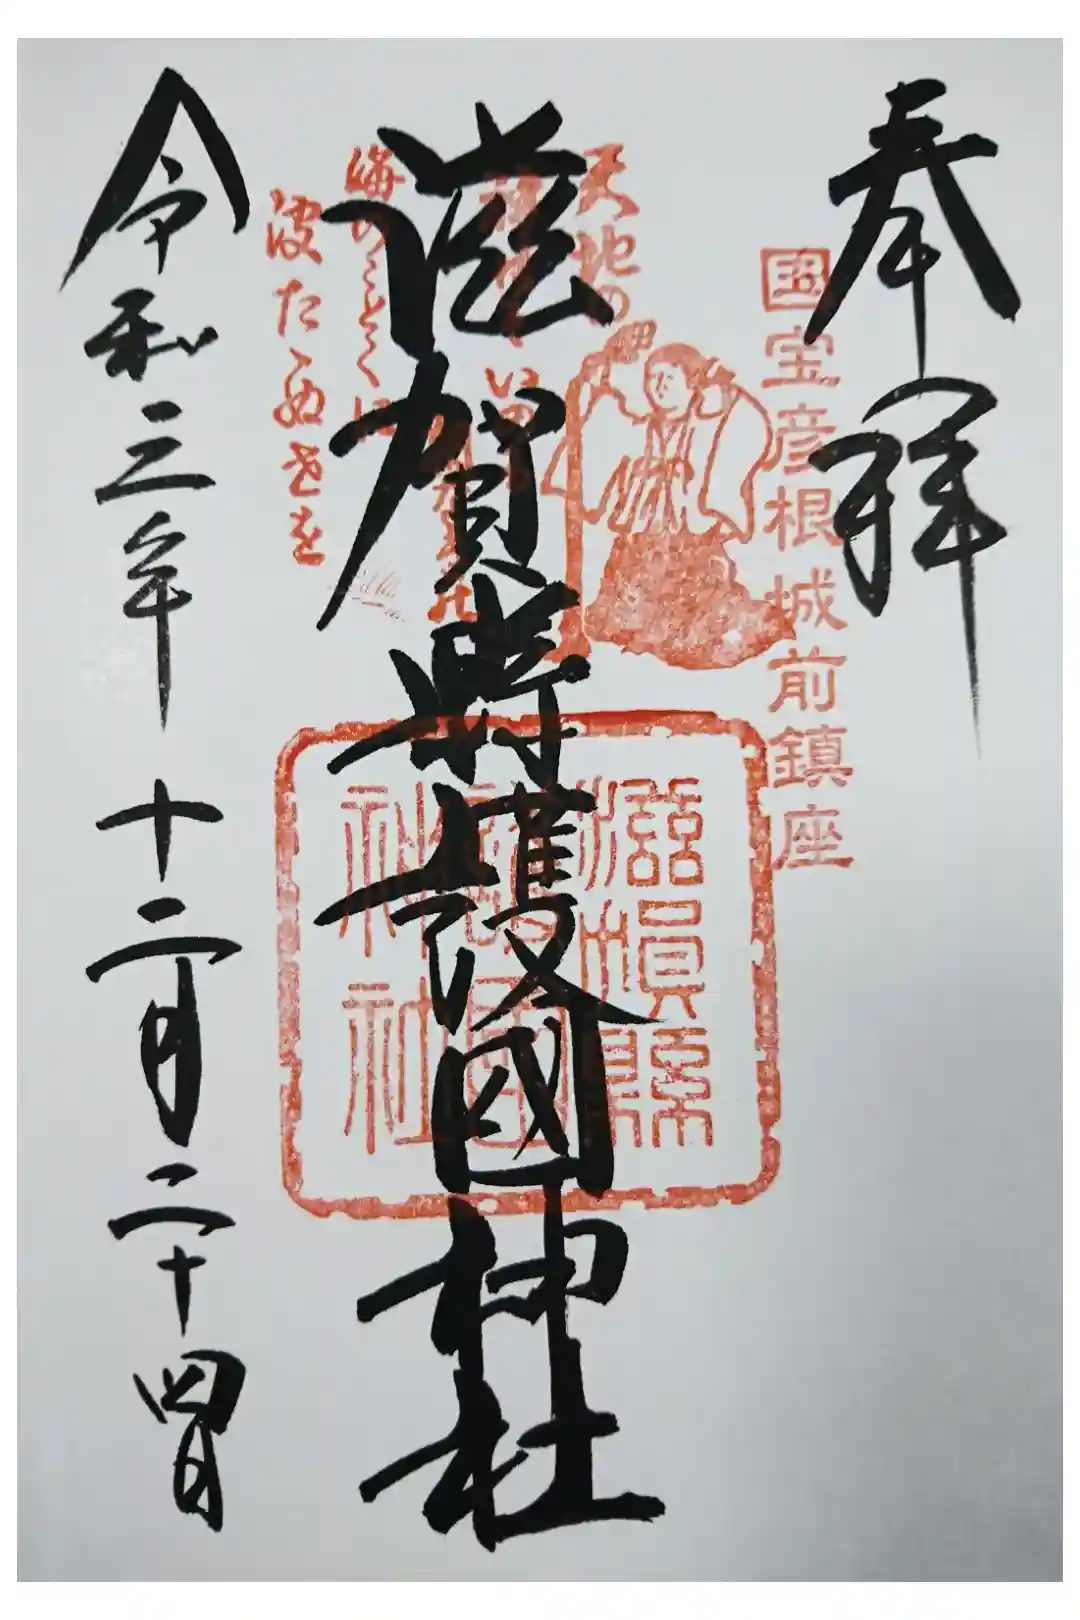 奉拝
国宝彦根城前鎮座
滋賀縣護國神社
滋賀縣
護國
神社
天地の
海のことくに
波たゝぬ世を
令和三年十二月二十四日